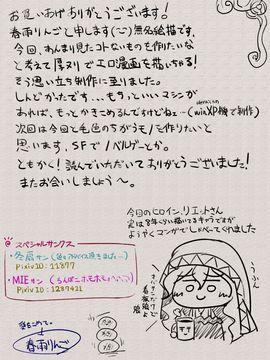 お買い上げありがとうございます!
春雨りんごと申します(〜)無名絵描です。
今回、あんまり見たコトないものを作りたいな
と考えて厚ヌリでエロ漫画を描いちゃる!
そう思い立ち制作に至りました。
しんどかったです…もちっといいマシンが
あれば、もっとかきこめるんですけどねェー(winXP機で制作)
次回は今回と毛色のちがうモノを作りたいと
思います、SFでノベルゲーとか。
ともかく!読んでいただいてありがとうございました!
またお会いしましょう〜。
今回のヒロイン、リエットさん
実は8年くらい描いてるキャラですが
ようやくマンガでしゃべってくれました
@スペシャルサンクス
・冬扇サン(色々アドバイス頂きました…)
Pixiv ID: 11877
・MIEサン
Pixiv ID: 1287421
春雨りんご